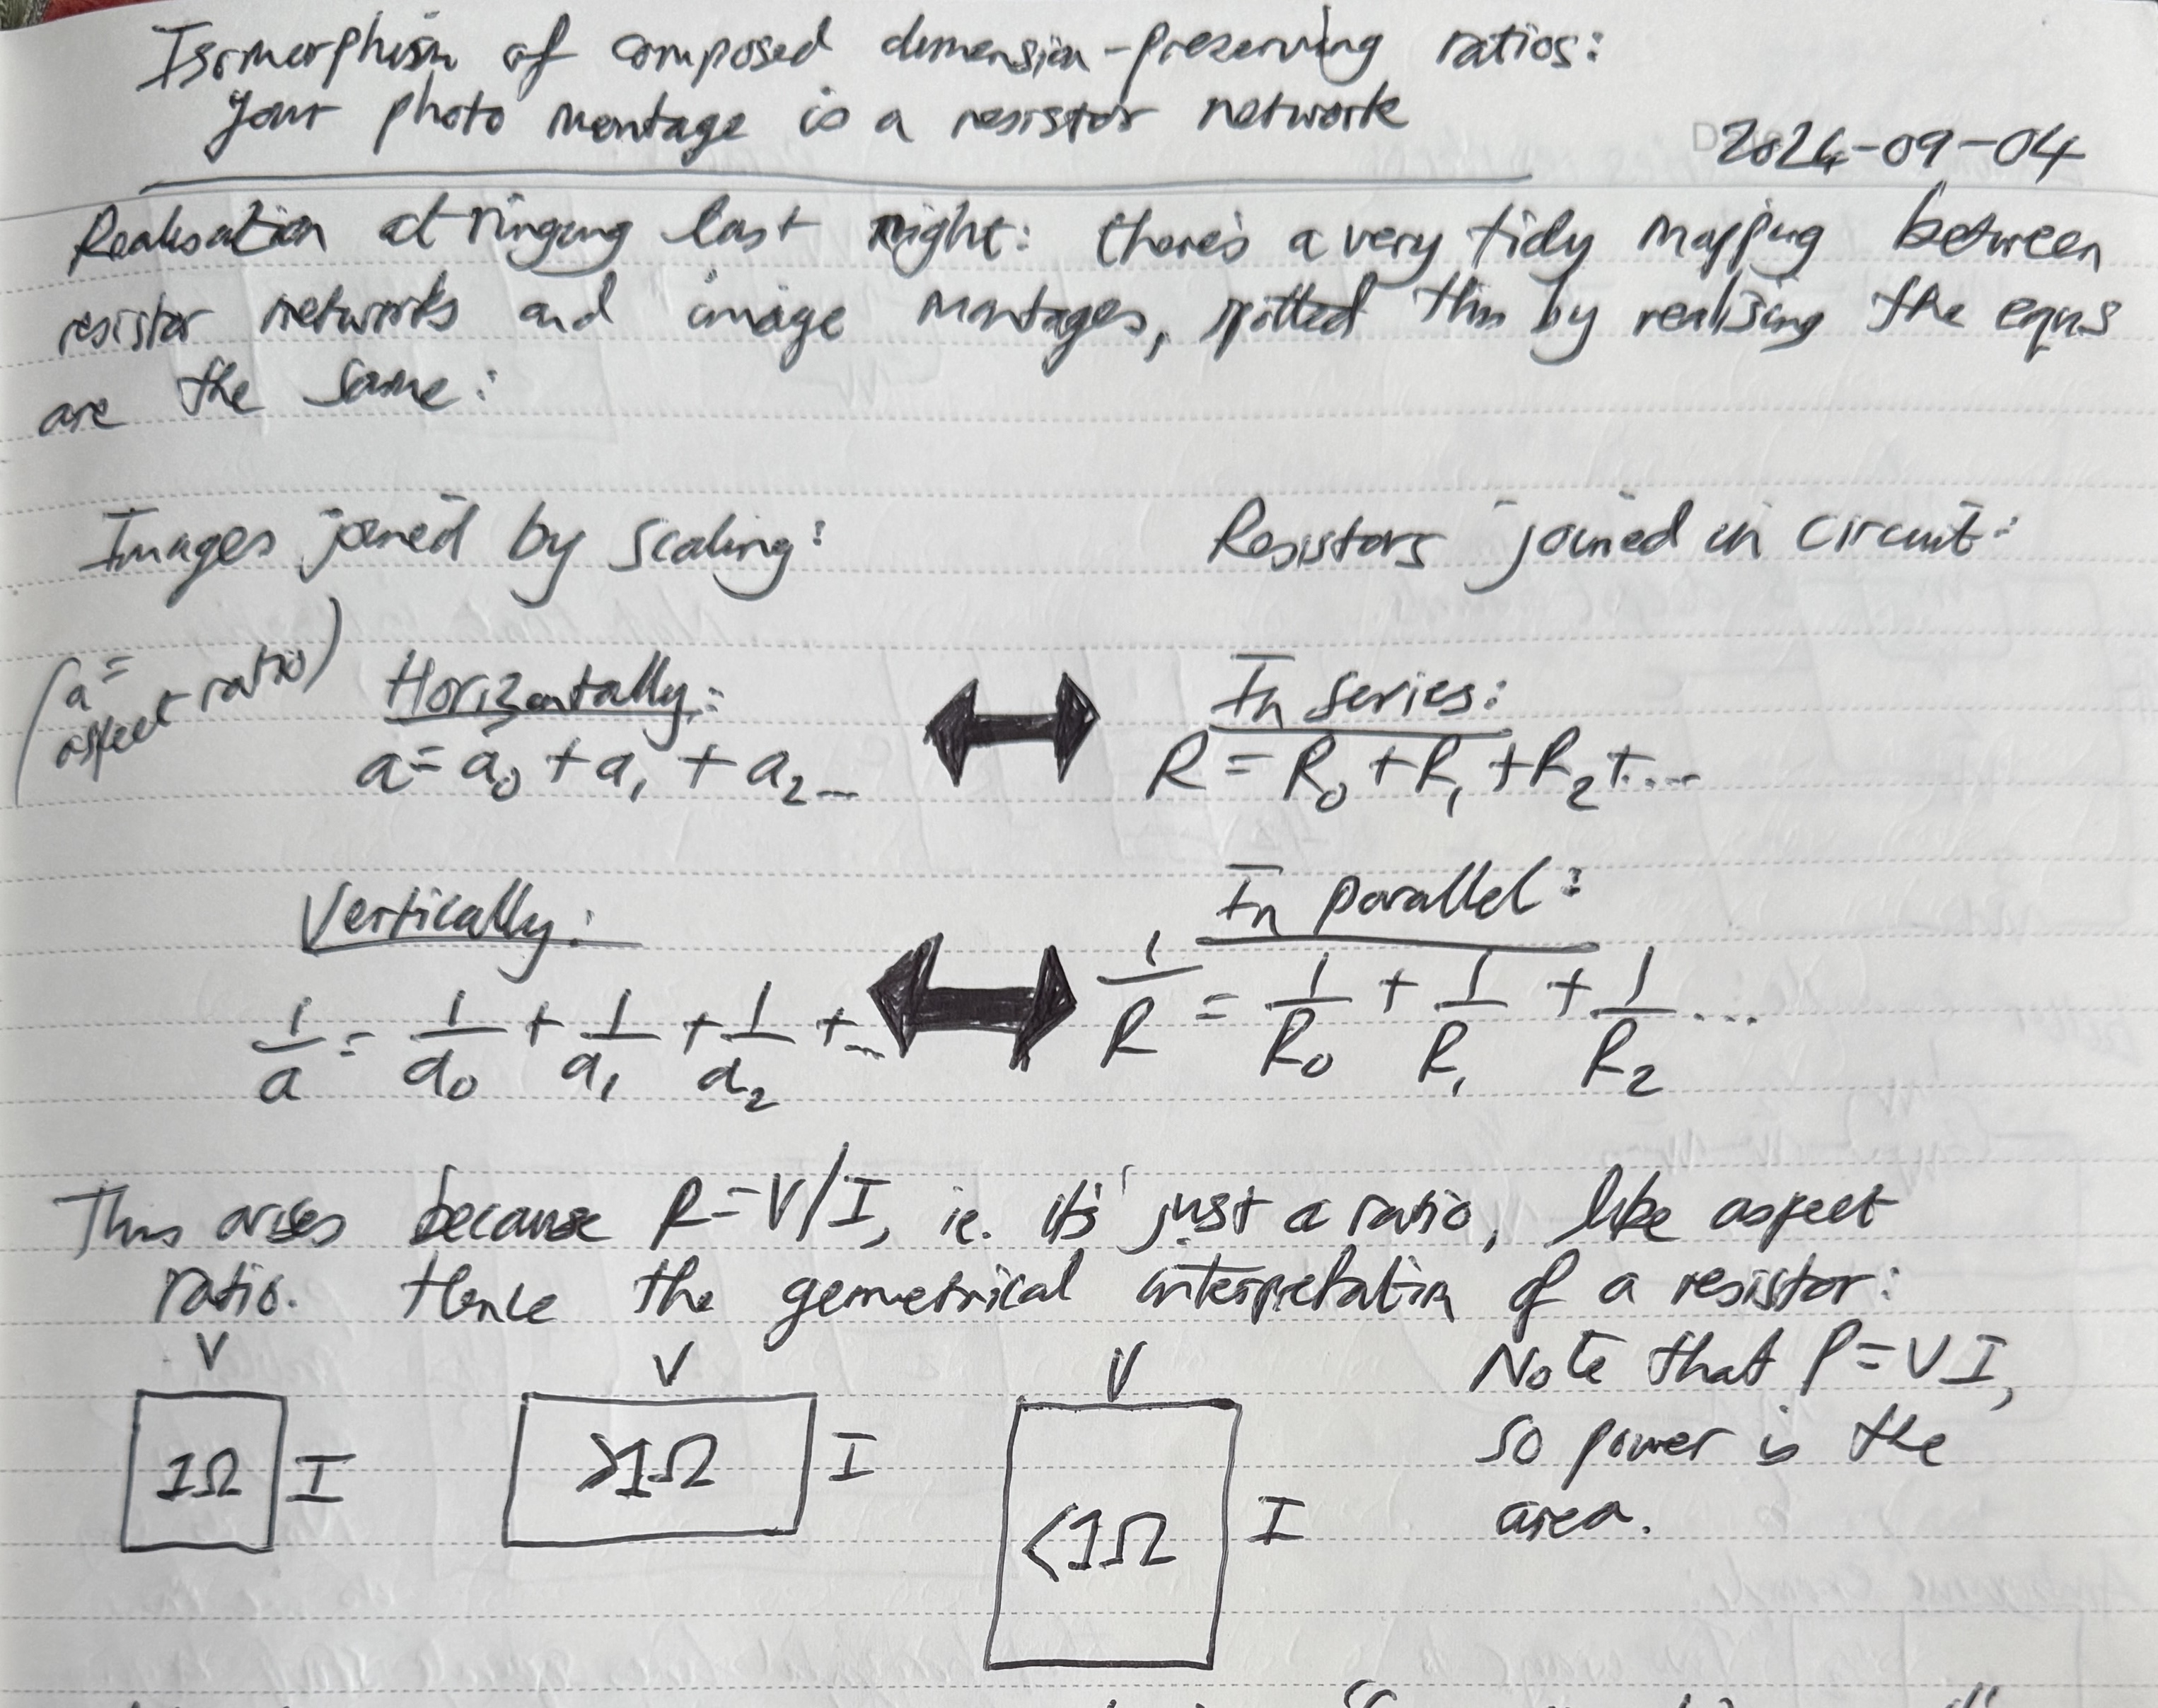 Isomorphism of composed dimension-preserving ratios:
Your photo montage is a resistor network
2024-09-04
Realisation at ringing last night: there's a very tidy mapping between
resistor networks and image montages, spotted this by realising the eqns
are the same:
Images joined by scaling:
Resistors joined in circuit:
(a =
aspect ratio)
Horizontally:
In series:
a = a₀ + a₁ + a₂ ...
R = R₀ + R₁ + R₂ + ...
Vertically:
In parallel:
1/a = 1/a₀ + 1/a₁ + 1/a₂ + ...
1/R = 1/R₀ + 1/R₁ + 1/R₂ ...
This arises because R = V/I, ie. it's just a ratio, like aspect
ratio. Hence the geometrical interpretation of a resistor:
V
1Ω I
V
>1Ω I
V
<1Ω I
Note that P = VI,
so power is the
area.